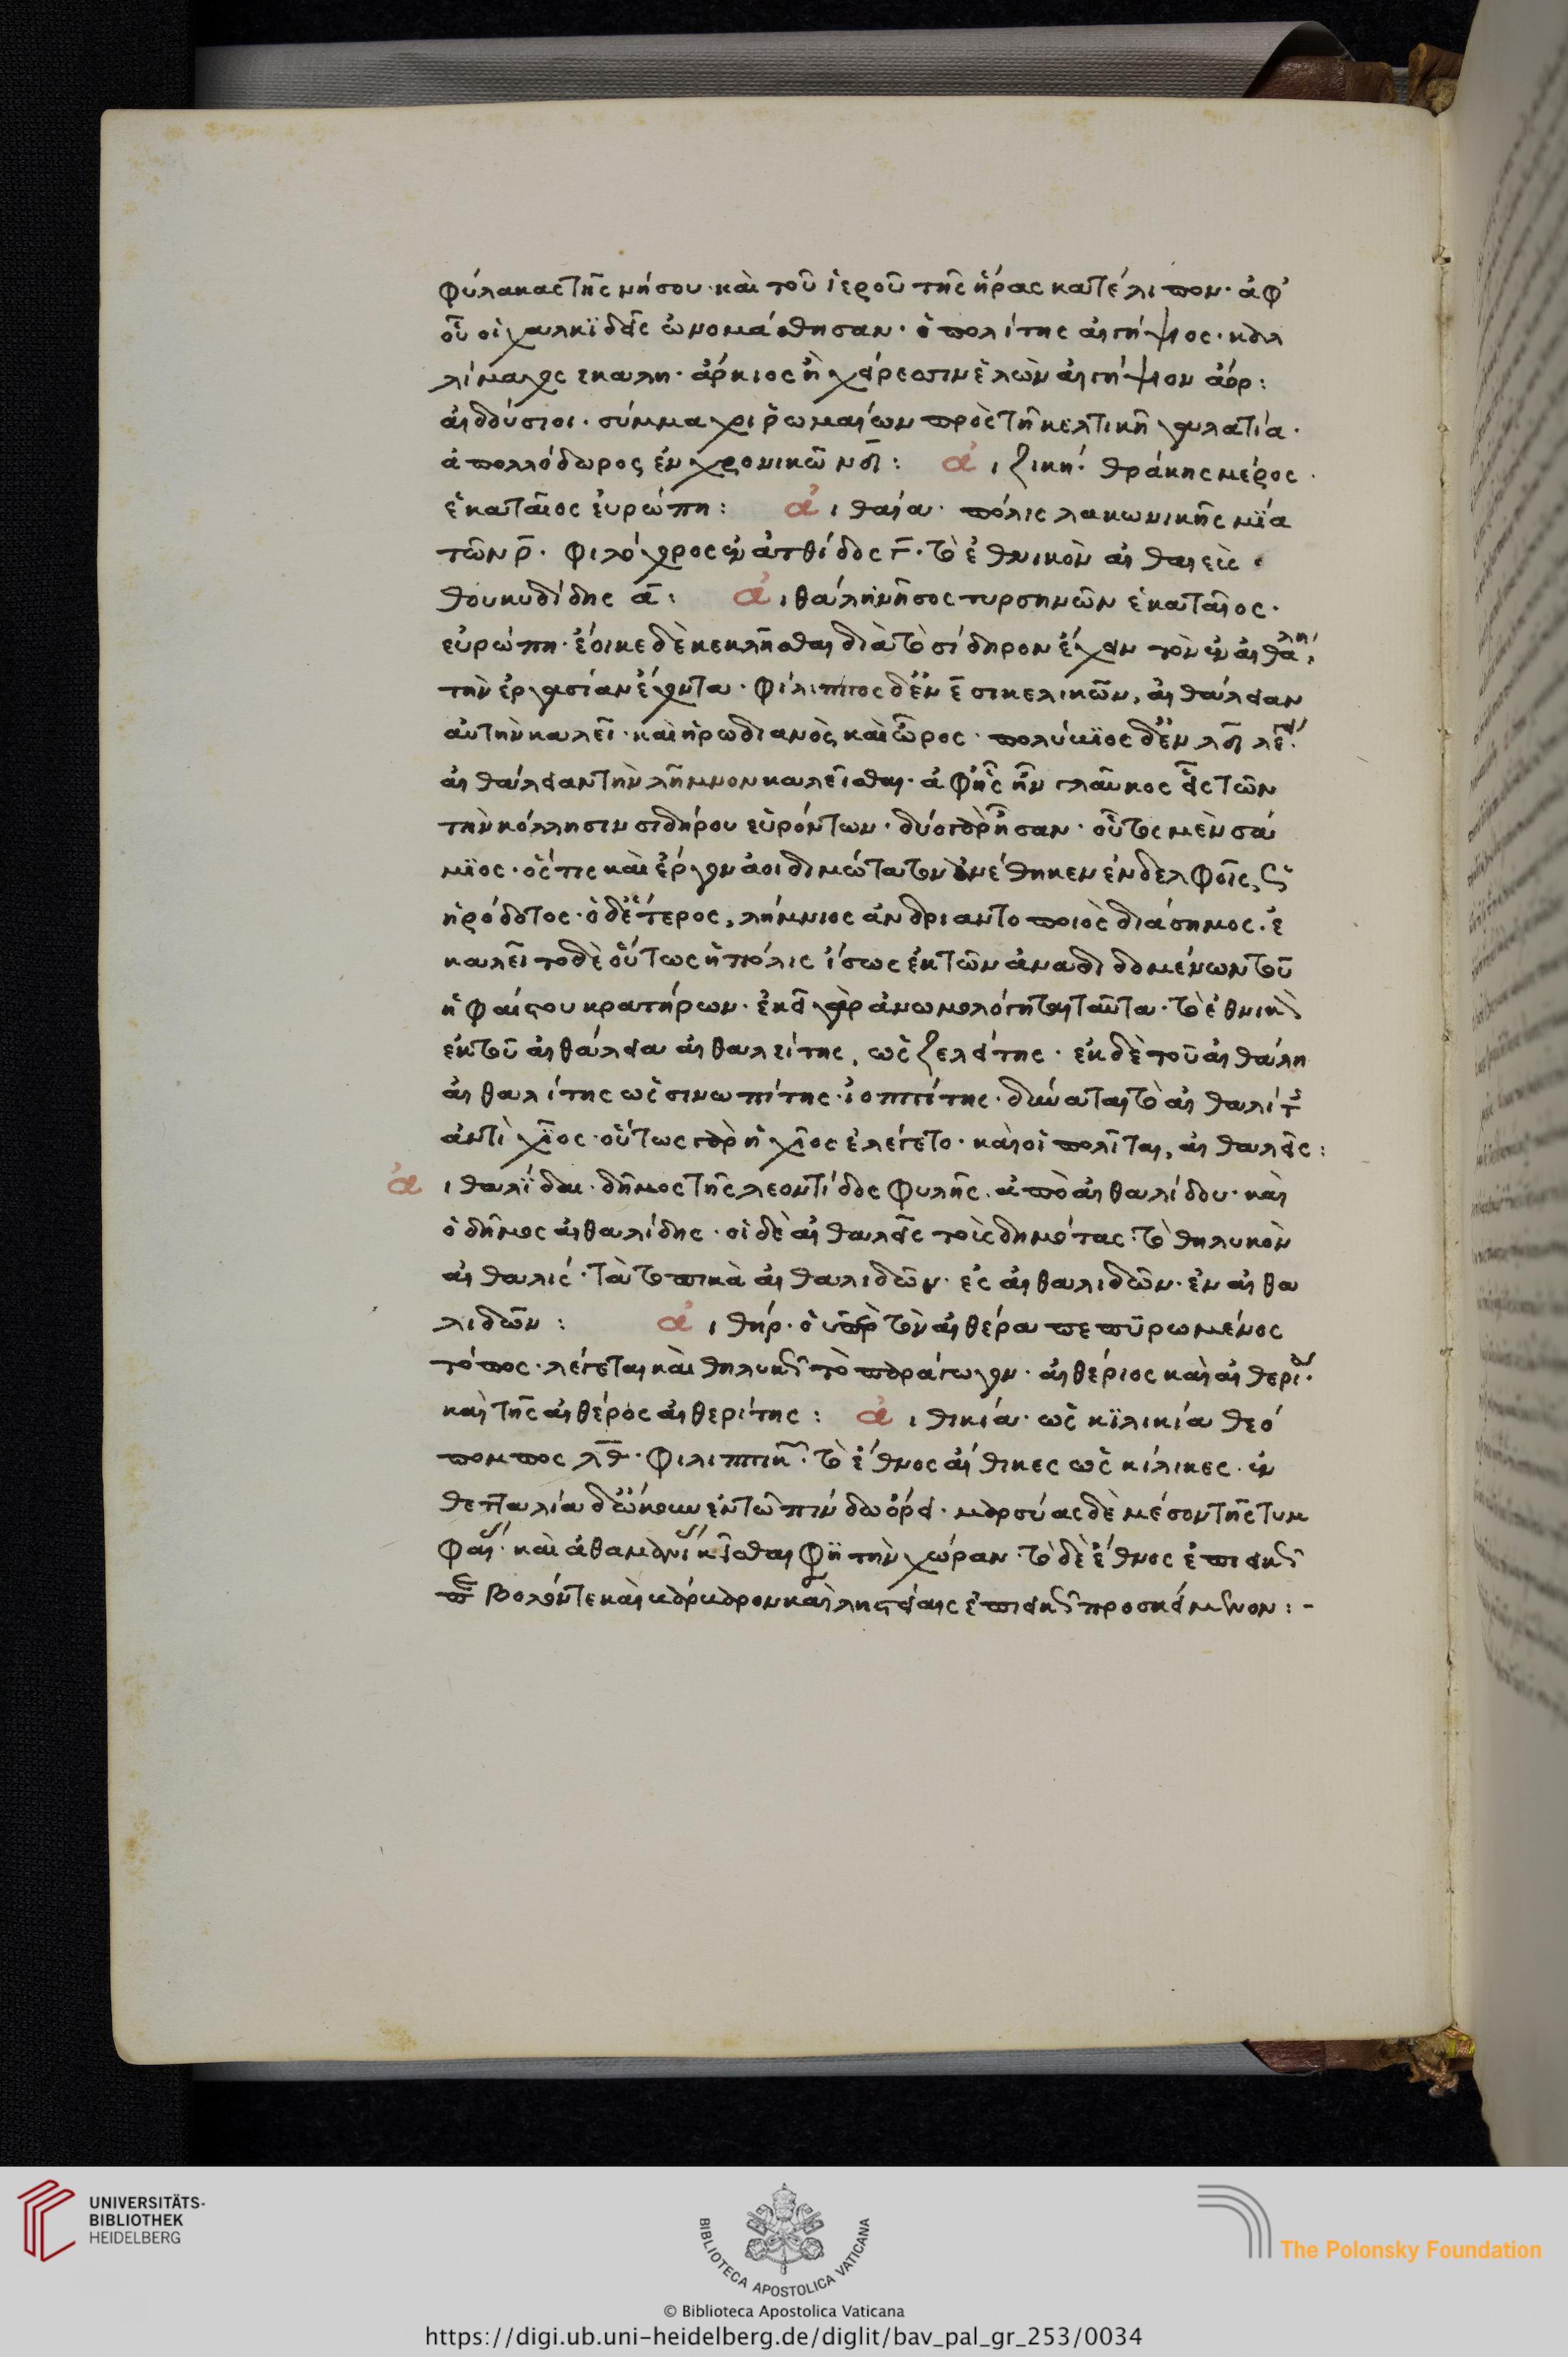 φύλακας τῆς νήσου· καὶ τοῦ ἱεροῦ τῆς ἥρας κατέλιπον· ἀφ'
οὗ οἱ χαλκϊδεῖς ὠνομάσθησαν· ὁ πολίτης αἰγήψιος· καλ
λίμαχος εκαλη· ἄρκιος ἢ χείρεσσιν ἑλὼν αἰγήψιον ἄορ:
αἰδούσιοι· σύμμαχοι ῥωμαίων πρὸς τῆ κελτικῆ γαλατία·
ἀπολλόδωρος ἐν χρονικῶν δ: ἀιζική· θράκης μέρος·
ἑκαταῖος ἐυρώπη: ἀιθαία· πόλις λακωνικῆς μϊα
τῶν ρ̄· φιλόχορος ἐν ἀτθίδος γ̄· τὸ ἐθνικὸν αἰθαιεὺς·
θουκυδίδης ᾱ: ἀιθάλη νῆσος τυρσηνῶν ἑκαταῖος·
εὐρώπη· ἔοικε δὲ κεκλῆσθαι διὰ τὸ σίδηρον ἔχειν τὸν ἐν αἰθάλη
τὴν ἐργασίαν ἔχοντα· φίλιππος δ' ἐν ε̄ σικελικῶν, αἰθάλειαν
αὐτὴν καλεῖ· καὶ ἡρωδιανὸς καὶ ὦρος· πολύβϊος δ' ἐν λδ̄ λέγει
αἰθάλειαν τὴν λῆμνον καλεῖσθαι· ἀφ' ἧς ἦν γλαῦκος εἷς τῶν
τὴν κόλλησιν σιδήρου εὑρόντων· δύο γὰρ ἦσαν· οὗτος μὲν σά
μϊος· ὅςτις καὶ ἔργον ἀοιδιμώτατον ἀνέθηκεν ἐν δελφοῖς, ὡς
ἡρόδοτος· ὁ δ' ἕτερος, λήμνιος ἀνδριαντοποιὸς διάσημος· ἐ
καλεῖτο δὲ οὕτως ἡ πόλις ἴσως ἐκ τῶν ἀναδιδομένων τοῦ
ἡφαίστου κρατήρων· ἐκεῖ γὰρ ἀνωμολόγηται ταῦτα· τὸ ἐθνικὸν
ἐκ τοῦ αἰθάλεια αἰθαλείτης, ὡς ζελείτης· ἐκ δὲ τοῦ αἰθάλη
αἰθαλίτης ὡς σινωπίτης· ἰοππίτης· δύναται τὸ αἰθαλίτης
ἀντὶ χῖος· οὕτως γὰρ ἡ χῖος ἐλέγετο· καὶ οἱ πολῖται, αἰθαλεῖς:
ἀιθαλίδαι· δῆμος τῆς λεοντίδος φυλῆς· ἀπὸ αἰθαλίδου· καὶ
ὁ δῆμος αἰθαλίδης· οἱ δὲ αἰθαλεῖς τοὺς δημότας· τὸ θηλυκὸν
αἰθαλις· τὰ τοπικὰ αἰθαλιδῶν· ἐς αἰθαλιδῶν· ἐν αἰθα
λιδῶν: ἀιθήρ· ὁ ὑπὲρ τὸν αἰθέρα πεπϋρωμένος
τόπος· λέγεται καὶ θηλυκῶς τὸ παράγωγον· αἰθέριος καὶ αἰθερία·
καὶ τῆς αἰθέρος αἰθερίτης: ἀιθικία· ὡς κϊλικία θεό
πομπος λθ̄· φιλιππικῶν· τὸ ἔθνος αἴθικες ὡς κίλικες· ἐν
θετταλία δ' ὤκουν ἐν τῶ πίνδω ὄρει· μαρσύας δὲ μέσον τῆς τυμ
φαίας· καὶ ἀθαμανίας κεῖσθαι φησὶ τὴν χώραν· τὸ δὲ ἔθνος ἐπιεικῶς
παράβολόν τε καὶ βάρβαρον καὶ ληστείαις ἐπιεικῶς προσκείμενον:-
UNIVERSITÄTS-
BIBLIOTHEK
HEIDELBERG
BIBLIOTECA APOSTOLICA VATICANA
The Polonsky Foundation
© Biblioteca Apostolica Vaticana
https://digi.ub.uni-heidelberg.de/diglit/bav_pal_gr_253/0034